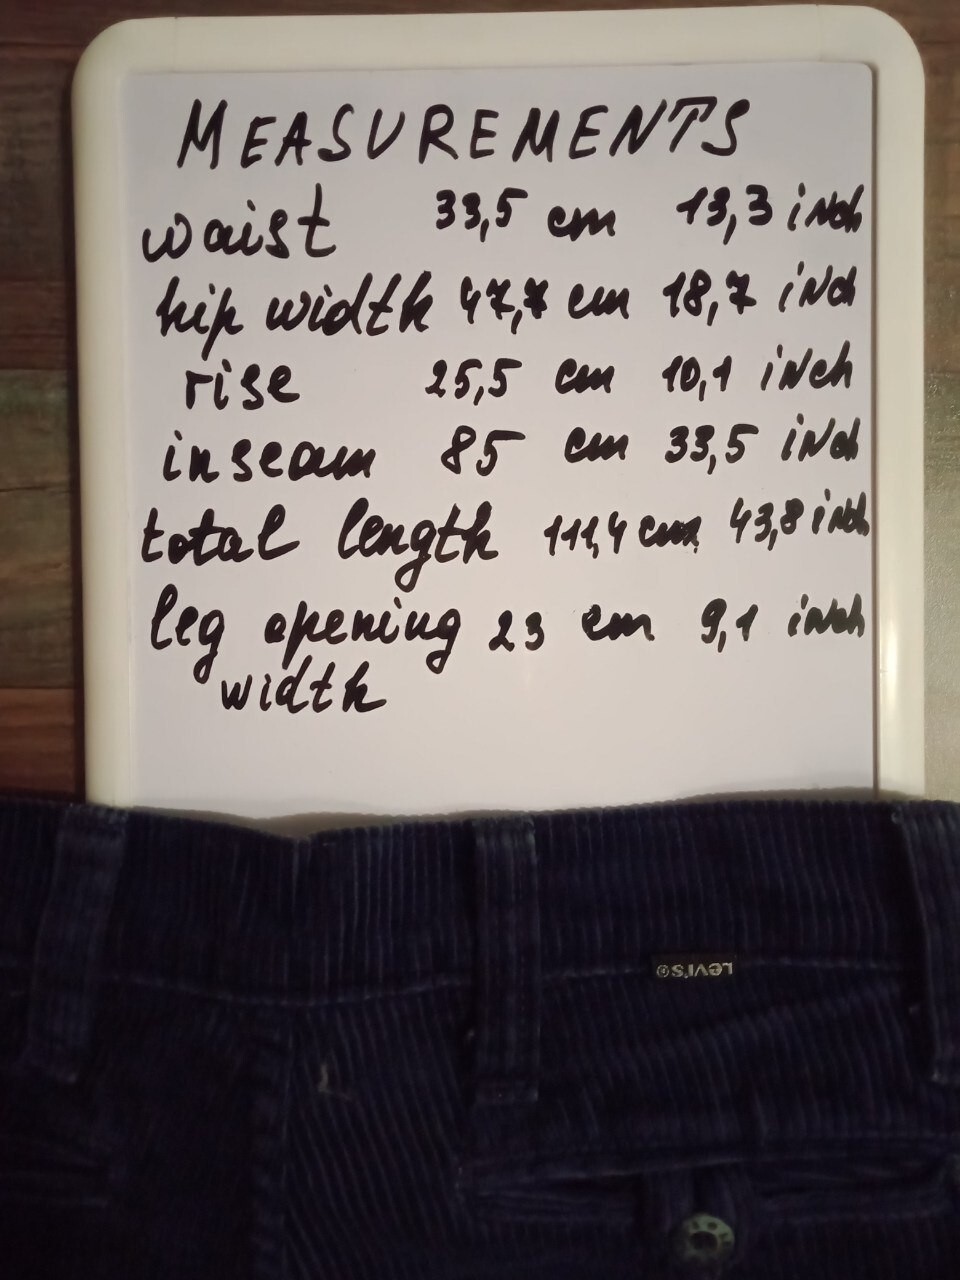 MEASUREMENTS
waist 33,5 cm 13,3 inch
hip width 47,7 cm 18,7 inch
rise 25,5 cm 10,1 inch
inseam 85 cm 33,5 inch
total length 111,4 cm 43,8 inch
leg opening 23 cm 9,1 inch
width
LEVI'S®